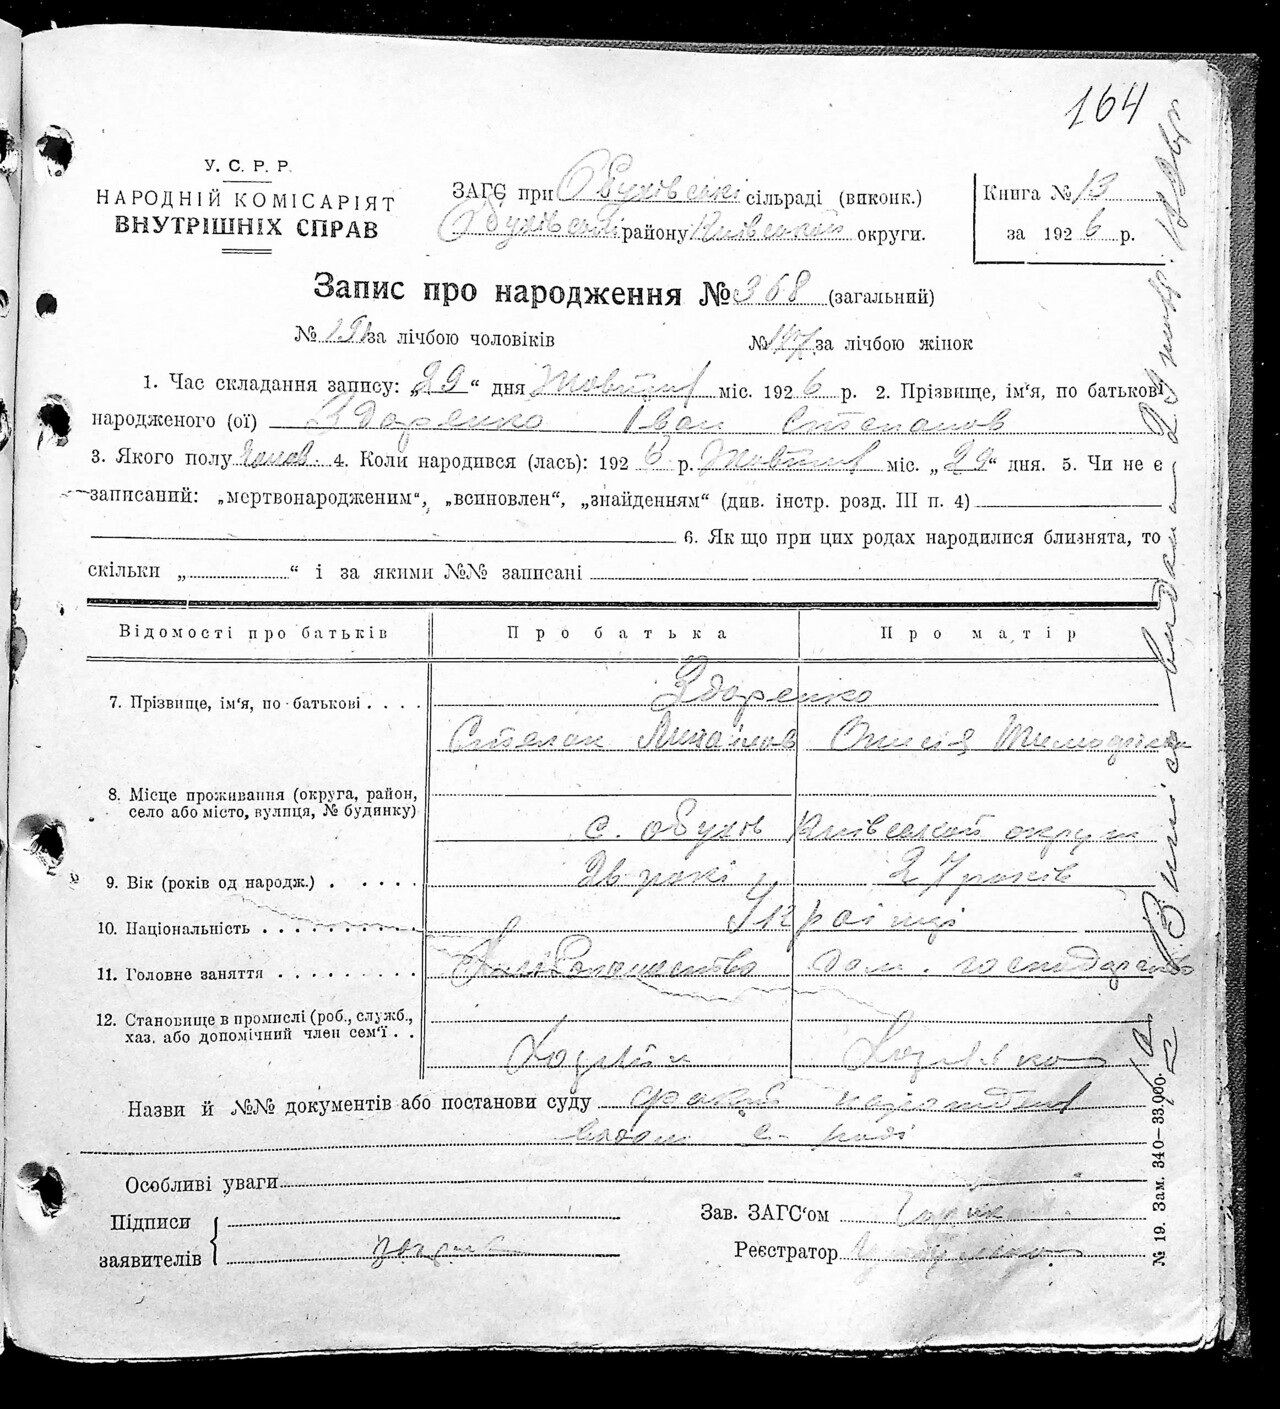 164
У. С. Р. Р.
НАРОДНІЙ КОМІСАРІЯТ
ВНУТРІШНІХ СПРАВ
ЗАГС при Обухівські сільраді (виконк.)
Обухівської району Київської округи.
Книга № 13
за 1926 р.
Запис про народження № 368 (загальний)
№ 191 за лічбою чоловіків
№ 177 за лічбою жінок
1. Час складання запису: „29“ дня Жовтня міс. 1926 р. 2. Прізвище, ім'я, по батькові
народженого (ої) Здоренко Іван Степанов
3. Якого полу 4. Коли народився (лась): 1926 р. Жовтня міс. „29“ дня. 5. Чи не є
записаний: „мертвонародженим“, „всиновлен“, „знайденням“ (див. інстр. розд. III п. 4)
6. Як що при цих родах народилися близнята, то
скільки „ “ і за якими №№ записані
Відомості про батьків Про батька Про матір
7. Прізвище, ім'я, по-батькові Здоренко
Степан Михайлов Тимофіївна
8. Місце проживання (округа, район,
село або місто, вулиця, № будинку)
с. Обухів Київської округи
9. Вік (років од народж.) 26 рокі 27 років
10. Національність Українці
11. Головне заняття Хліборобство дом. господарство
12. Становище в промислі (роб., служб.,
хаз. або допомічний член сем'ї
Хозяїн Хозяйка
Назви й №№ документів або постанови суду
Особливі уваги
Підписи
заявителів
Зав. ЗАГС'ом
Реєстратор
№ 19. Зам. 340—33.000.
Випис видано